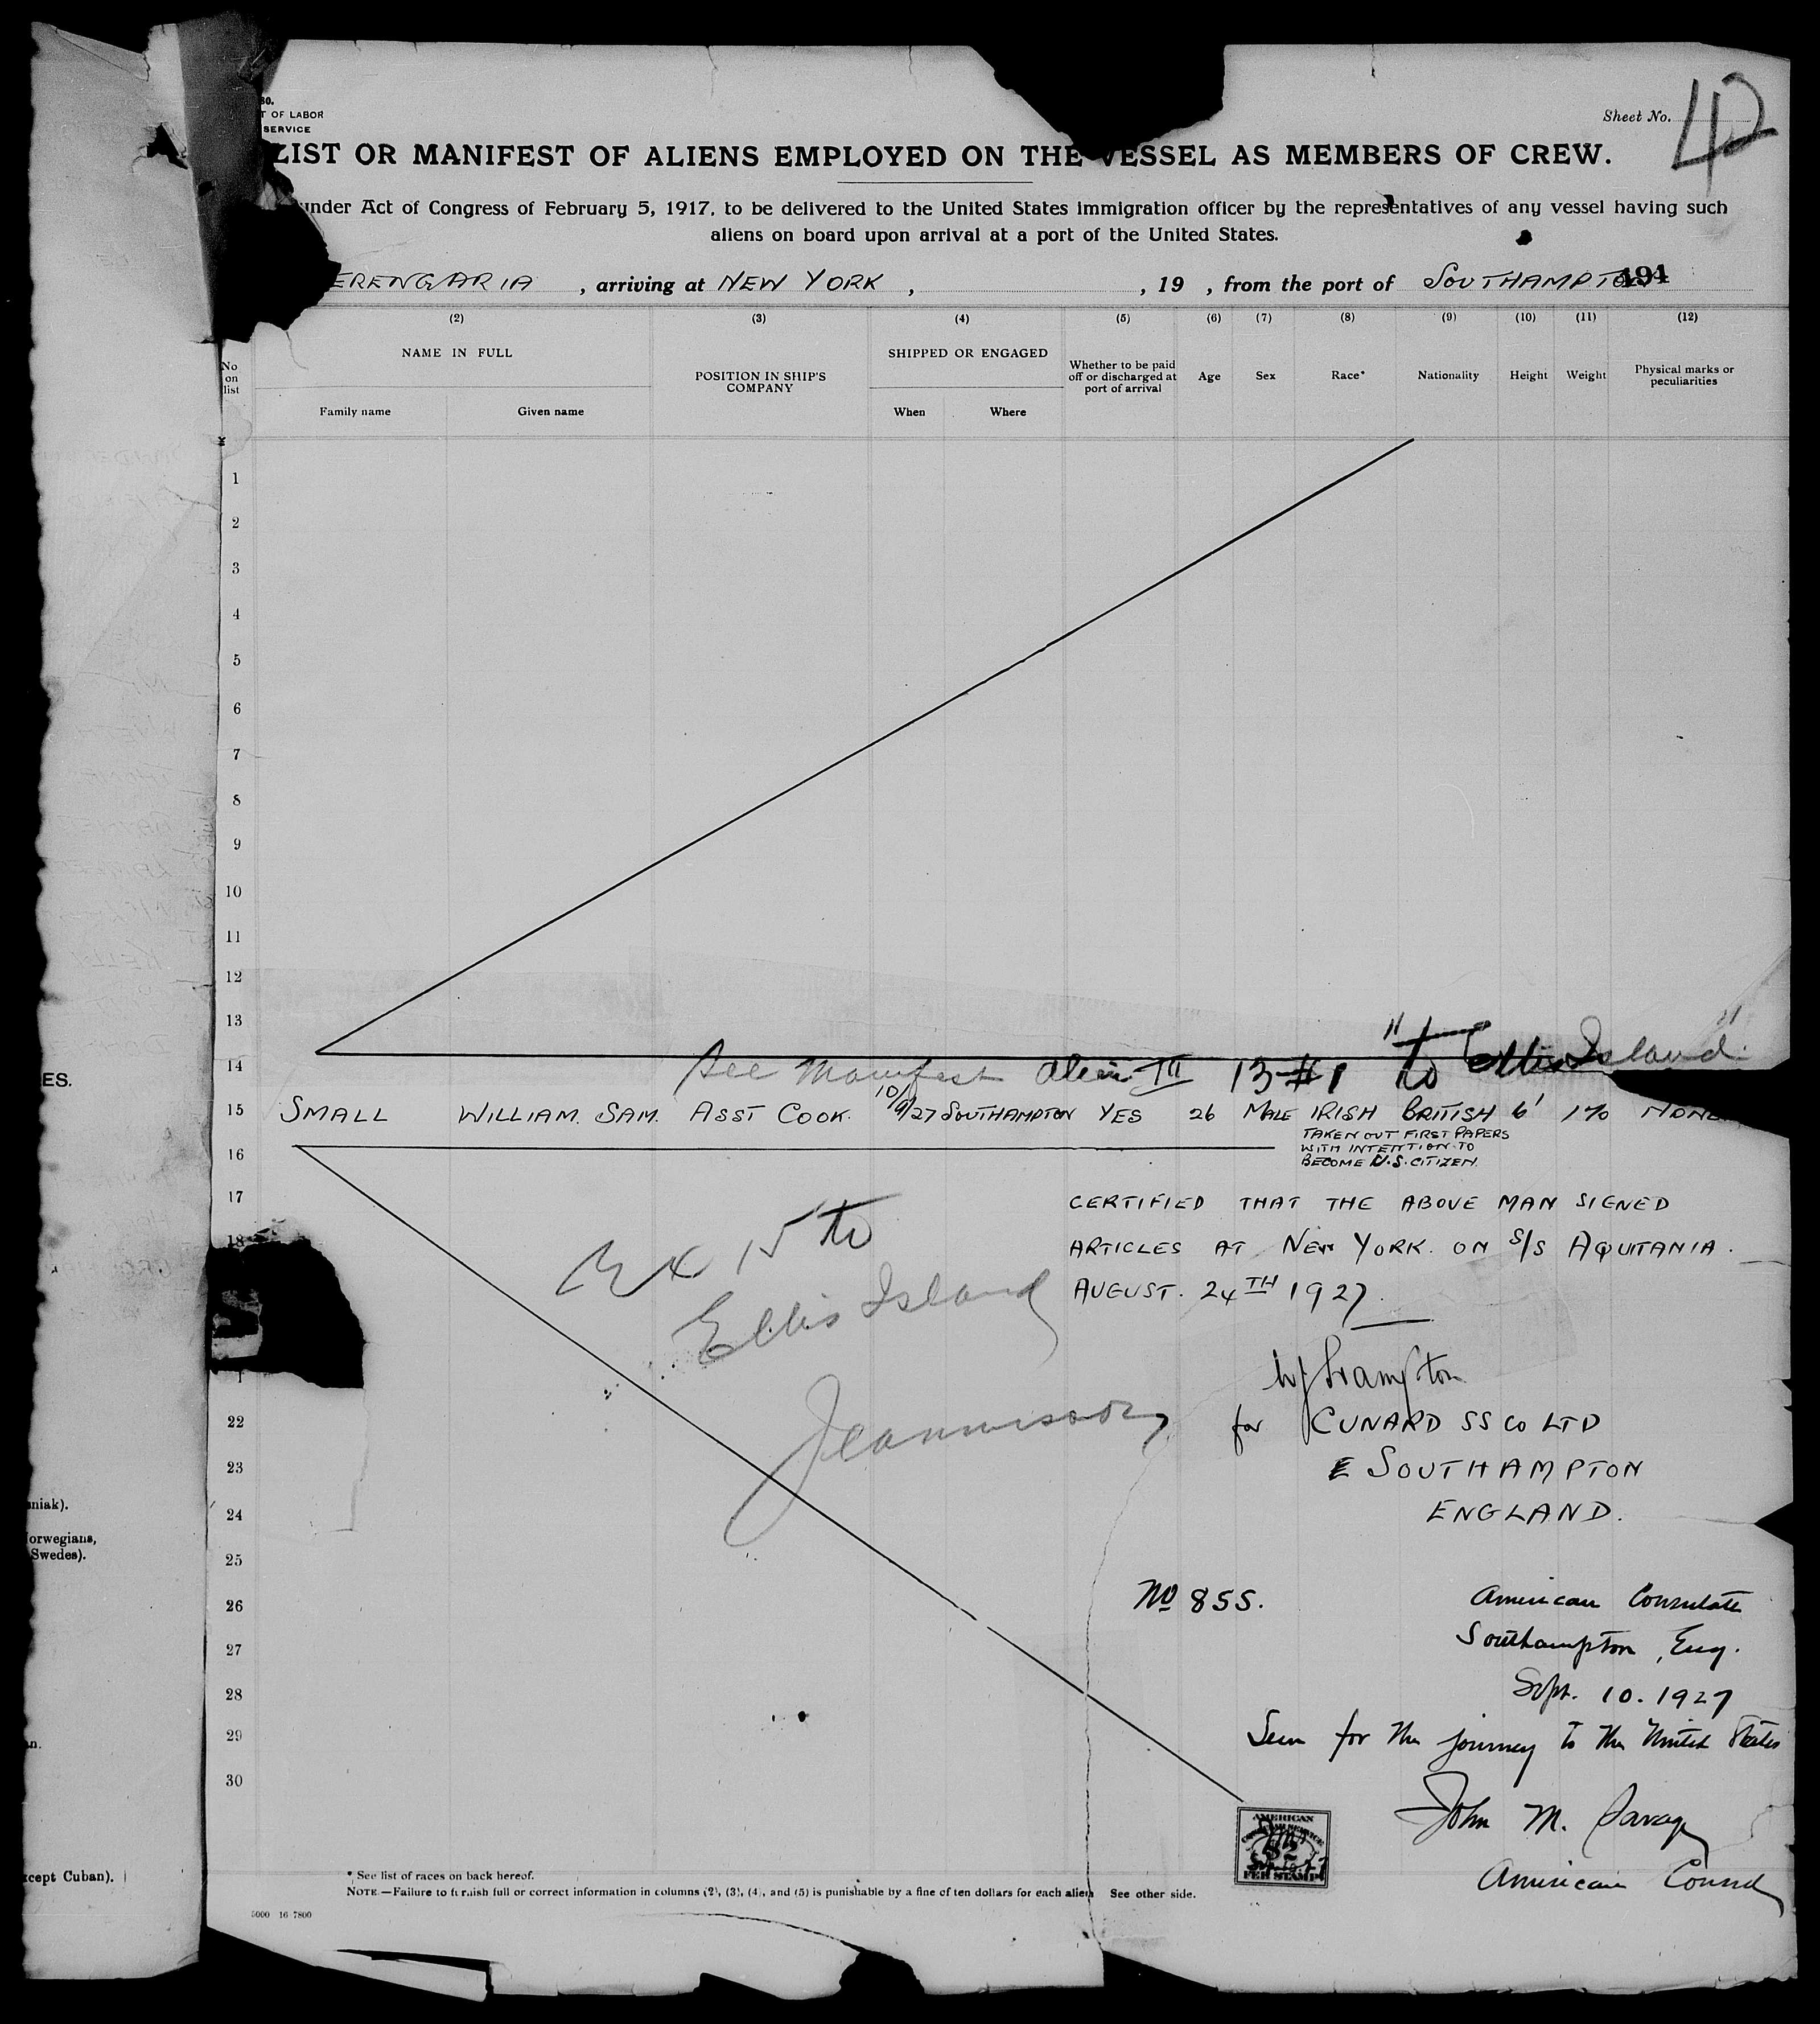 80.
T OF LABOR
SERVICE
Sheet No. 42
LIST OR MANIFEST OF ALIENS EMPLOYED ON THE VESSEL AS MEMBERS OF CREW.
under Act of Congress of February 5, 1917, to be delivered to the United States immigration officer by the representatives of any vessel having such
aliens on board upon arrival at a port of the United States.
ERENGARIA , arriving at NEW YORK , , 19 , from the port of SOUTHAMPTON 491
(2) (3) (4) (5) (6) (7) (8) (9) (10) (11) (12)
No on list
NAME IN FULL
Family name Given name
POSITION IN SHIP'S COMPANY
SHIPPED OR ENGAGED
When Where
Whether to be paid off or discharged at port of arrival
Age Sex Race* Nationality Height Weight
Physical marks or peculiarities
1
2
3
4
5
6
7
8
9
10
11
12
13
14 See Manifest Alien III 13 #1 to Ellis Island
15 SMALL WILLIAM. SAM. ASST COOK. 10/9/27 SOUTHAMPTON YES 26 MALE IRISH BRITISH 6' 170 NONE
TAKEN OUT FIRST PAPERS
WITH INTENTION TO
BECOME U.S. CITIZEN.
16
17 CERTIFIED THAT THE ABOVE MAN SIGNED
18 ARTICLES AT NEW YORK. ON S/S AQUITANIA.
AUGUST. 24TH 1927.
15 to
Ellis Island
for CUNARD SS CO LTD
SOUTHAMPTON
ENGLAND.
22
23
24
25
26
27
28
29
30
No 855.
American Consulate
Southampton, Eng.
Sept. 10. 1927
Seen for the journey to the United States
John M. Savage
American Consul
AMERICAN
CONSULAR SERVICE
$2
FEE STAMP
* See list of races on back hereof.
NOTE.—Failure to furnish full or correct information in columns (2), (3), (4), and (5) is punishable by a fine of ten dollars for each alien See other side.
5000 16-7800
ES.
sniak).
orwegians,
Swedes).
an.
xcept Cuban).